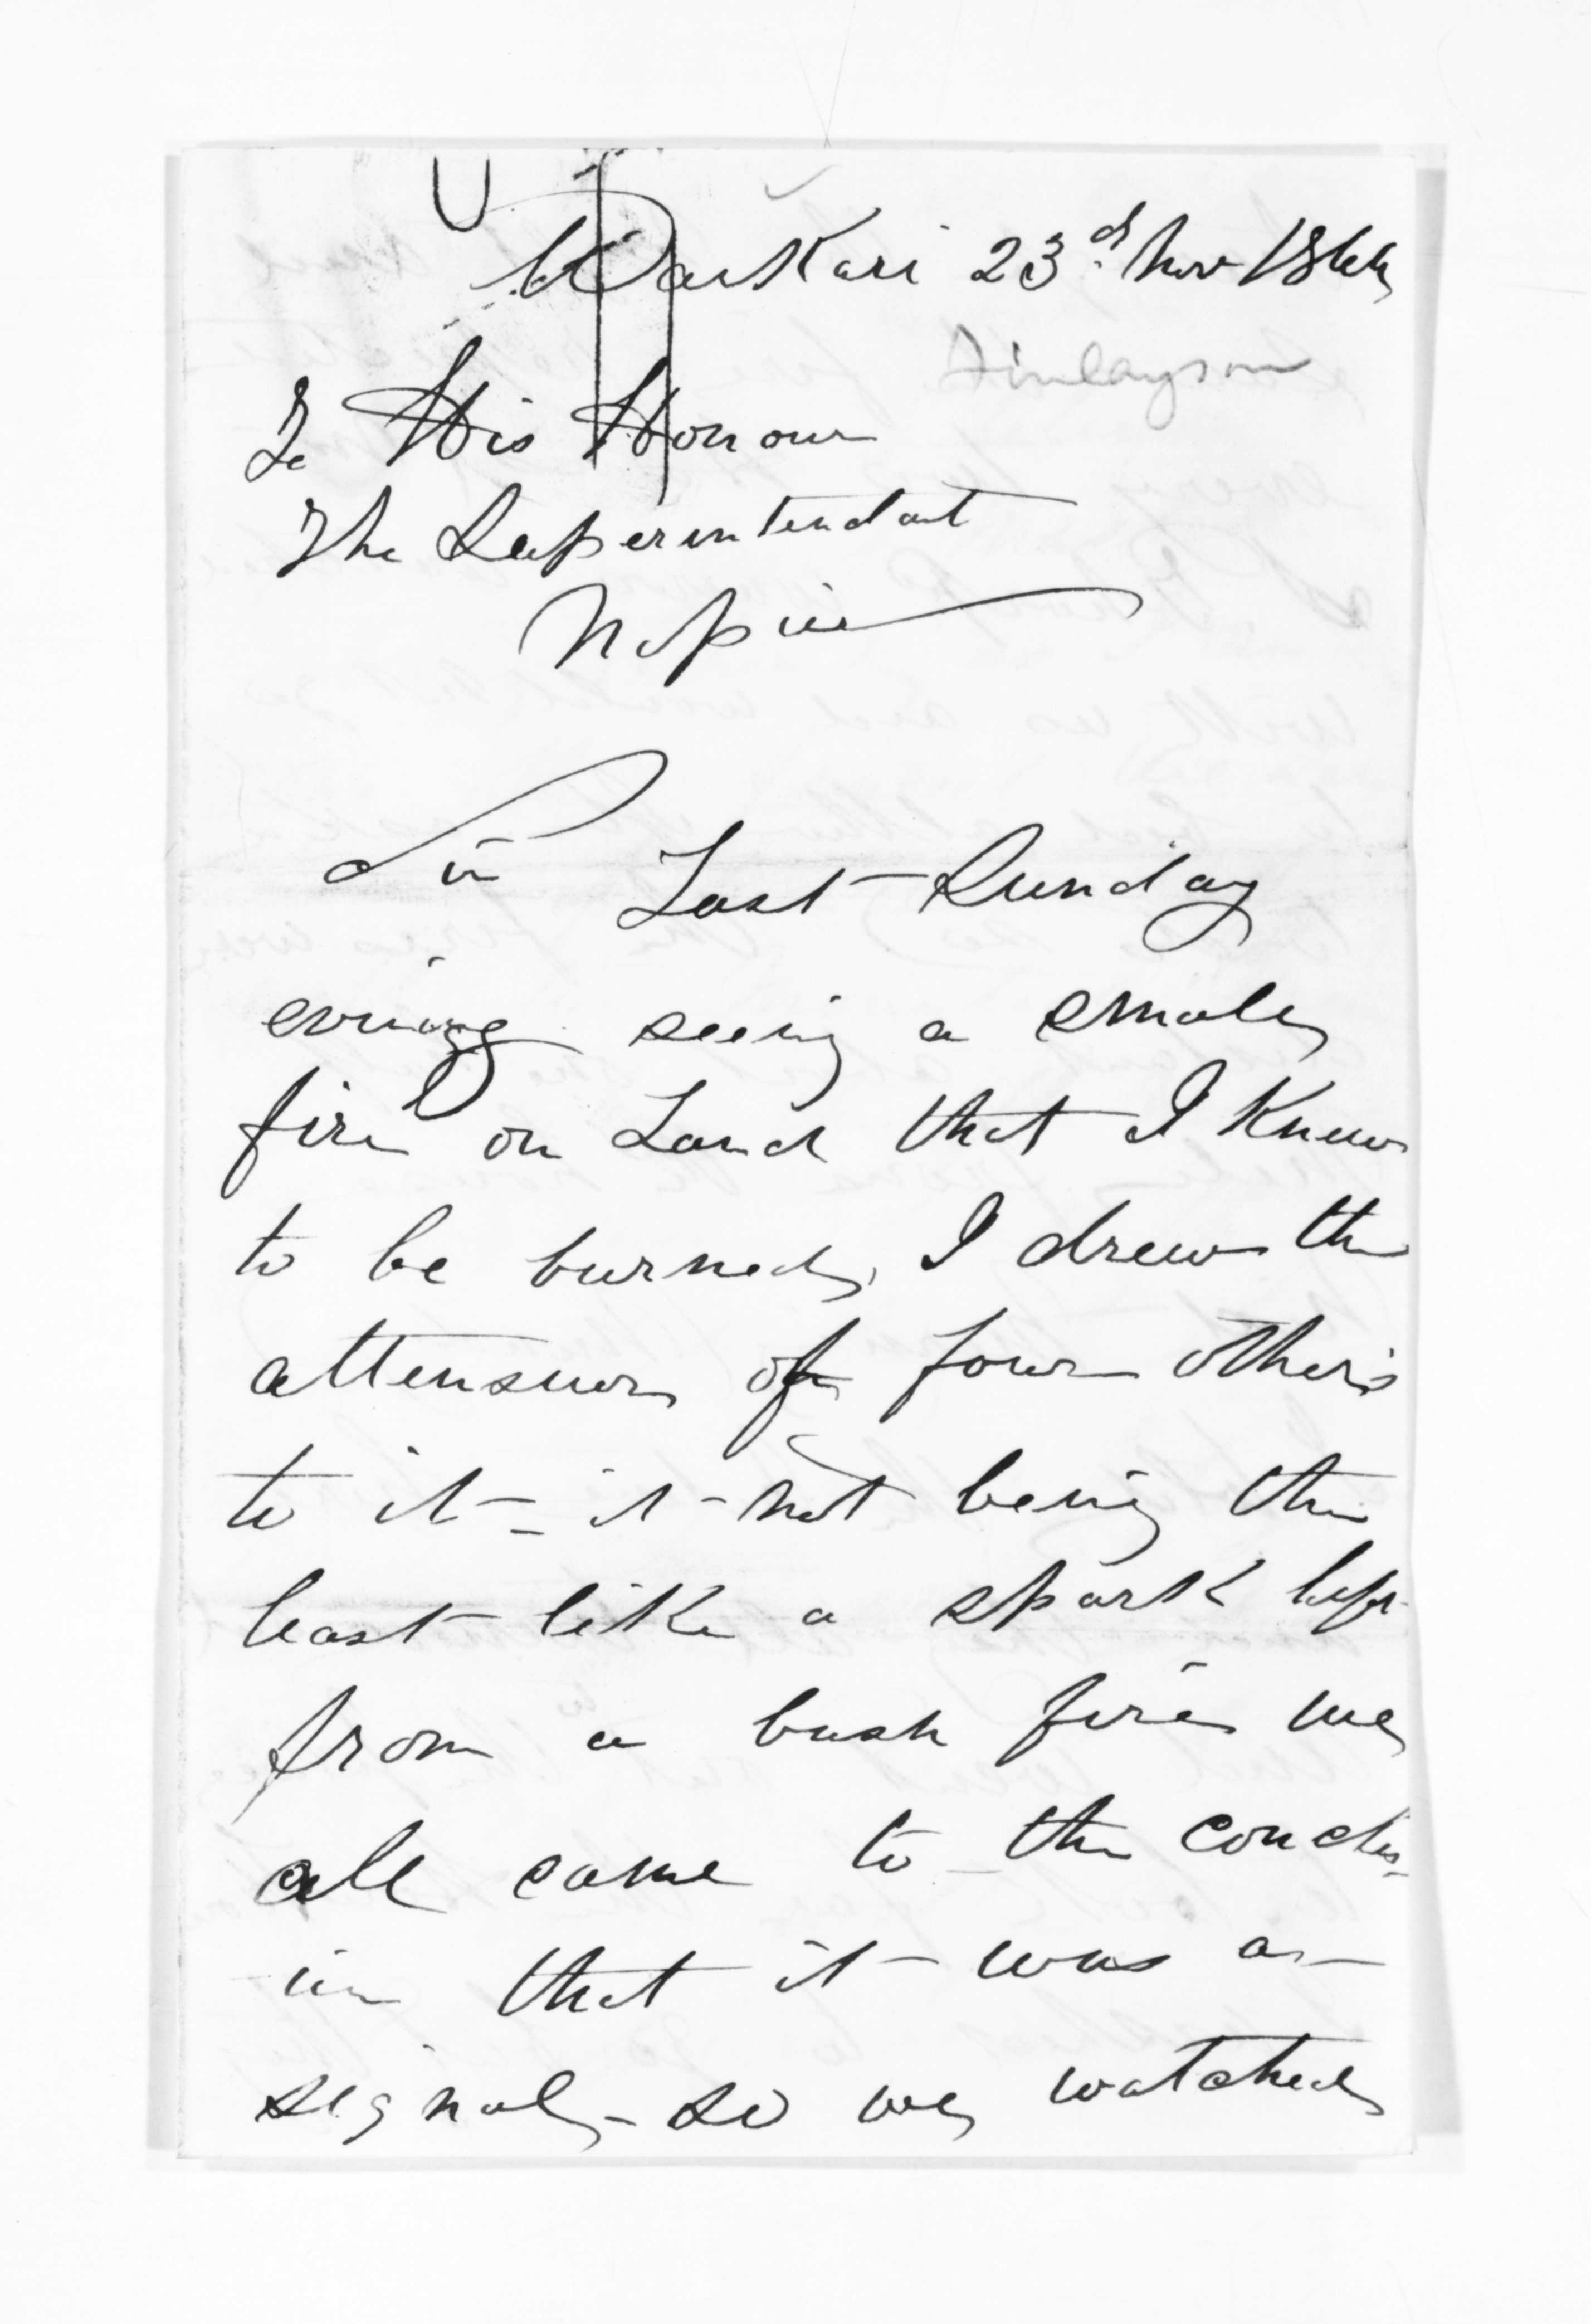 Waikari 23d. Nov 186
Finlayson
To His Honour
The Superintendant
Napier
Sir Last Sunday
evening seeing a small
fire on Land that I Knew
to be burned, I drew the
attension of four others
to it - it not being the
least like a spark left
from a bush fire we
all came to the conclus-
ion that it was a
signal - so we watched